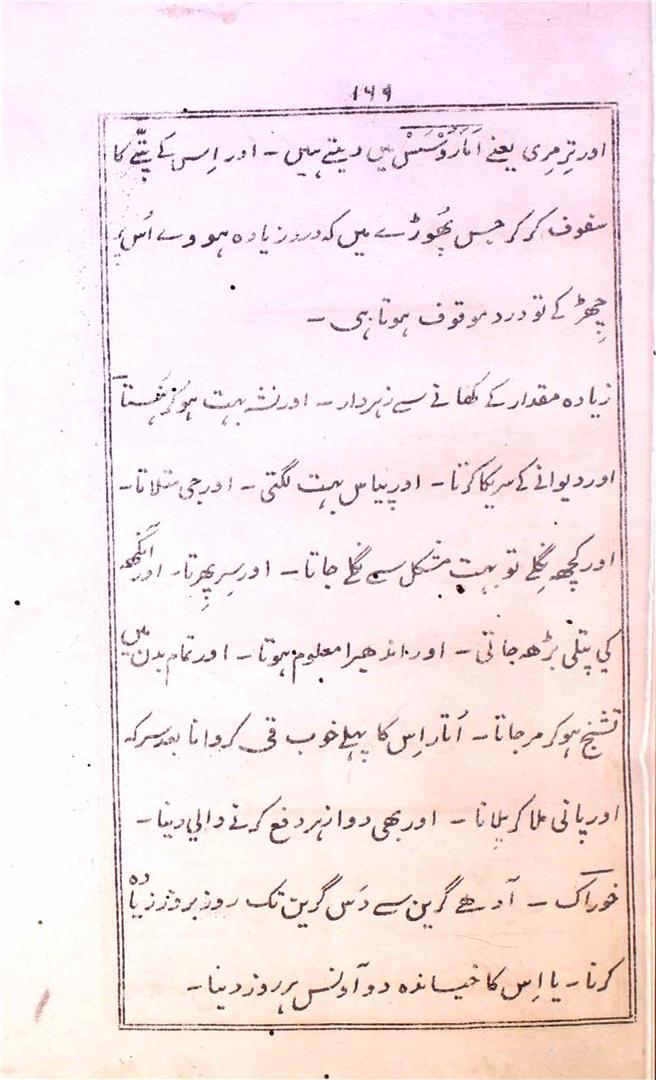 ۱۶۹
اور تِرمِری یعنے اَمَاروْسَسْ میں دیتے ہیں - اور اِس کے پتّے کا
سفوف کر کر جس پھُوڑے میں کہ درد زیادہ ہووے اُس پر
چھِڑ کے تو درد موقوف ہوتا ہی -
زیادہ مقدار کے کھانے سے زہردار - اور نشہ بہت ہو کر ہَنستا
اور دیوانے کے سریکا کرتا - اور پیاس بہت لگتی - اور جی متلاتا -
اور کچھ نِگلے تو بہت مشکل سے نگلے جاتا - اور سِر پھِرتا - اور آنکھ
کی پتلی بڑھ جاتی - اور اندھیرا معلوم ہوتا - اور تمام بدن میں
تشنج ہو کر مر جاتا - اُتار اِس کا پہلے خوب قی کروانا بعد سرکہ
اور پانی ملا کر پِلانا - اور بھی دوا زہر دفع کرنے والی دینا -
خوراک - آدھے گرین سے دَس گرین تک روز بروز زیادہ
کرنا - یا اِس کا خیساندہ دو آونس ہر روز دینا -